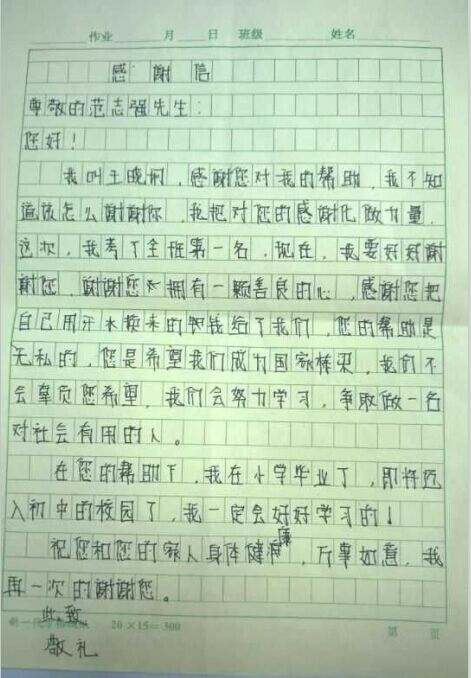 作业 月 日 班级 姓名
感谢信
尊敬的范志强先生：
您好！
我叫王晓刚，感谢您对我的帮助，我不知
道该怎么谢谢你，我把对您的感谢化做力量，
这次，我考了全班第一名，现在，我要好好谢
谢您，谢谢您 拥有一颗善良的心，感谢您把
自己用汗水换来的 钱给了我们，您的帮助是
无私的，您是希望我们成为国家栋梁，我们不
会辜负您希望，我们会努力学习，争取做一名
对社会有用的人。
在您的帮助下，我在小学毕业了，即将迈
入初中的校园了，我一定会好好学习的！
祝您和您的家人身体健康，万事如意，我
再一次的谢谢您。
此致
20×15=300 第 页
敬礼